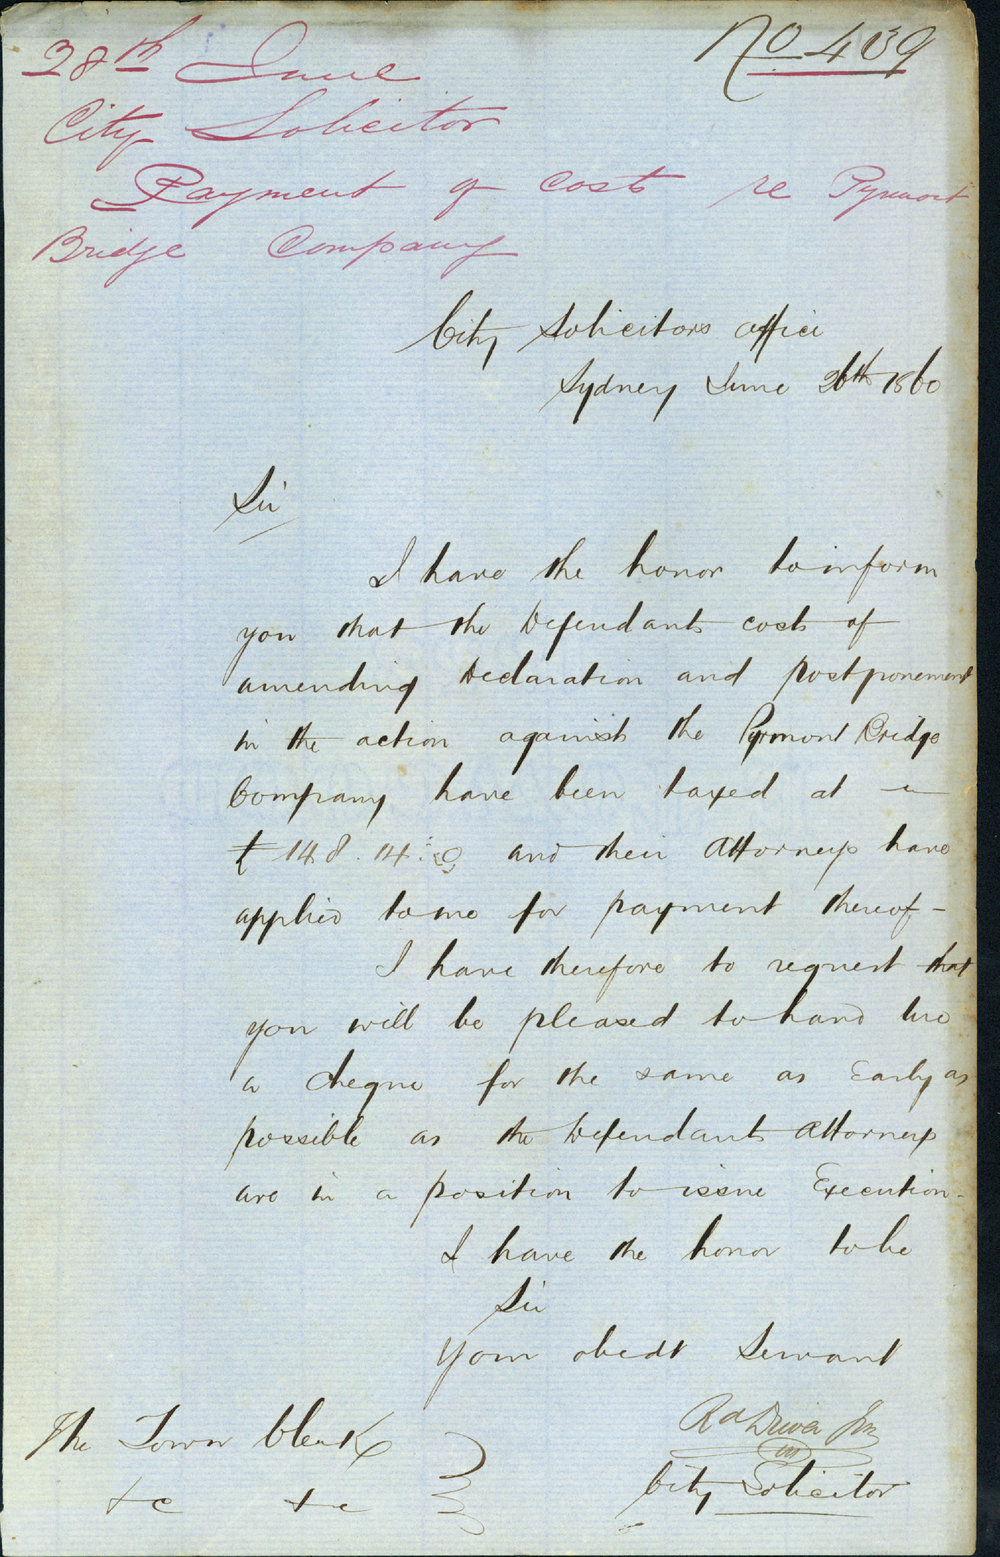 No 439
28th June
City Solicitor
Payment of Costs re Pyrmont
Bridge Company
City Solicitors Office
Sydney June 26th 1860
Sir
I have the honor to inform
you that the Defendants costs of
amending Declaration and postponement
in the action against the Pyrmont Bridge
Company have been taxed at
£148.14.0 and their Attorneys have
applied to me for payment thereof -
I have therefore to request that
you will be pleased to hand me
a cheque for the same as Early as
possible as the Defendants Attorneys
are in a position to issue Execution.
I have the honor to be
Sir
Your obedt Servant
Rd Driver Jnr
City Solicitor
The Town Clerk
&c &c